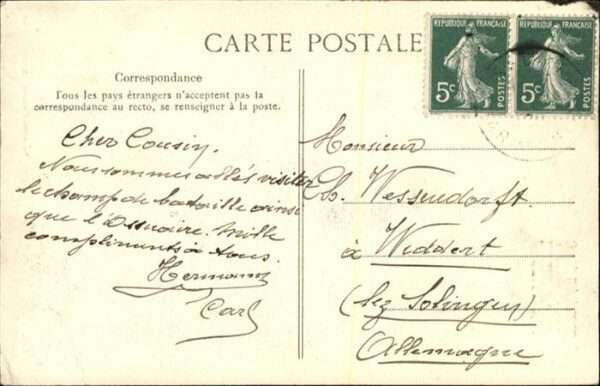 CARTE POSTALE
REPUBLIQUE FRANÇAISE
5c
POSTES
REPUBLIQUE FRANÇAISE
5c
POSTES
Correspondance
Tous les pays étrangers n'acceptent pas la
correspondance au recto, se renseigner à la poste.
Cher Cousin,
Nous sommes allés visiter
le champ de bataille ainsi
que l'Ossuaire. Mille
compliments à tous.
Hermann
Carl
Monsieur
Wessendorft
à Widdert
(bez Solingen)
Allemagne